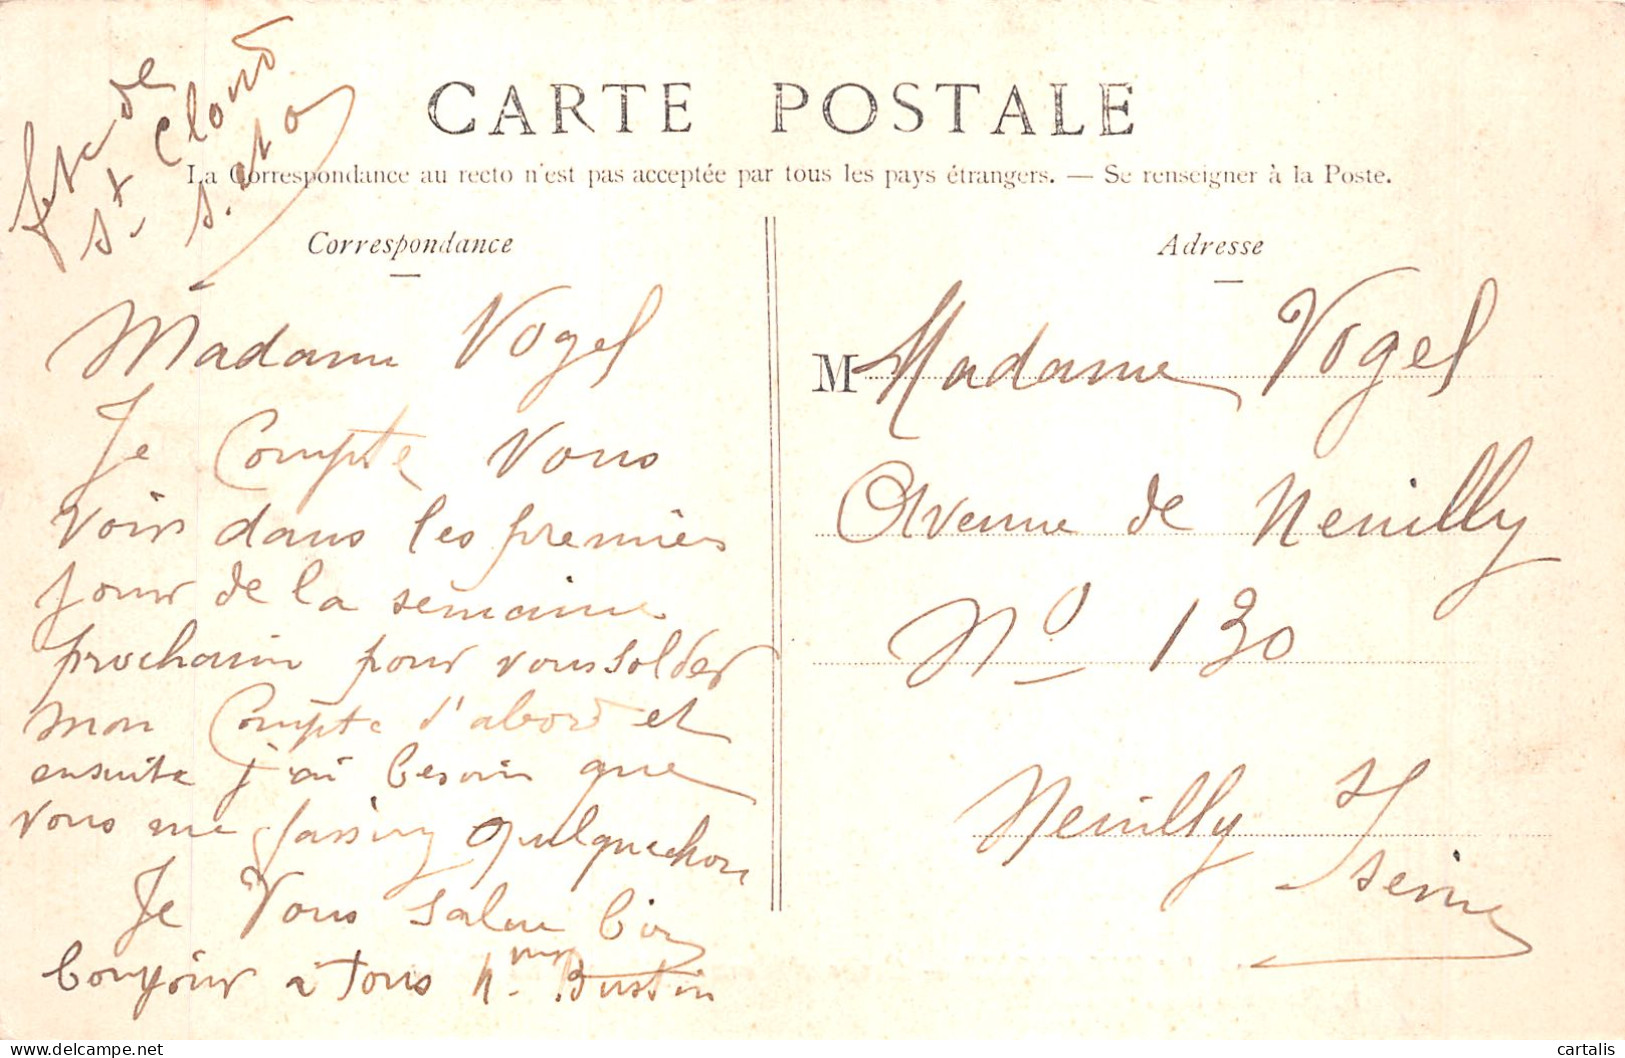 fete de
St Cloud
CARTE POSTALE
La Correspondance au recto n'est pas acceptée par tous les pays étrangers. — Se renseigner à la Poste.
Correspondance
Madame Vogel
Je Compte vous
voir dans les premies
jour de la semaine
prochain pour vous solder
mon Compte d'abord et
ensuite j'ai besoin que
vous me fassiez quelquechose
Je Vous salue bien
bonjour à tous Bustin
Adresse
M Madame Vogel
Avenue de Neuilly
No 130
Neuilly s/
seine
cartalis